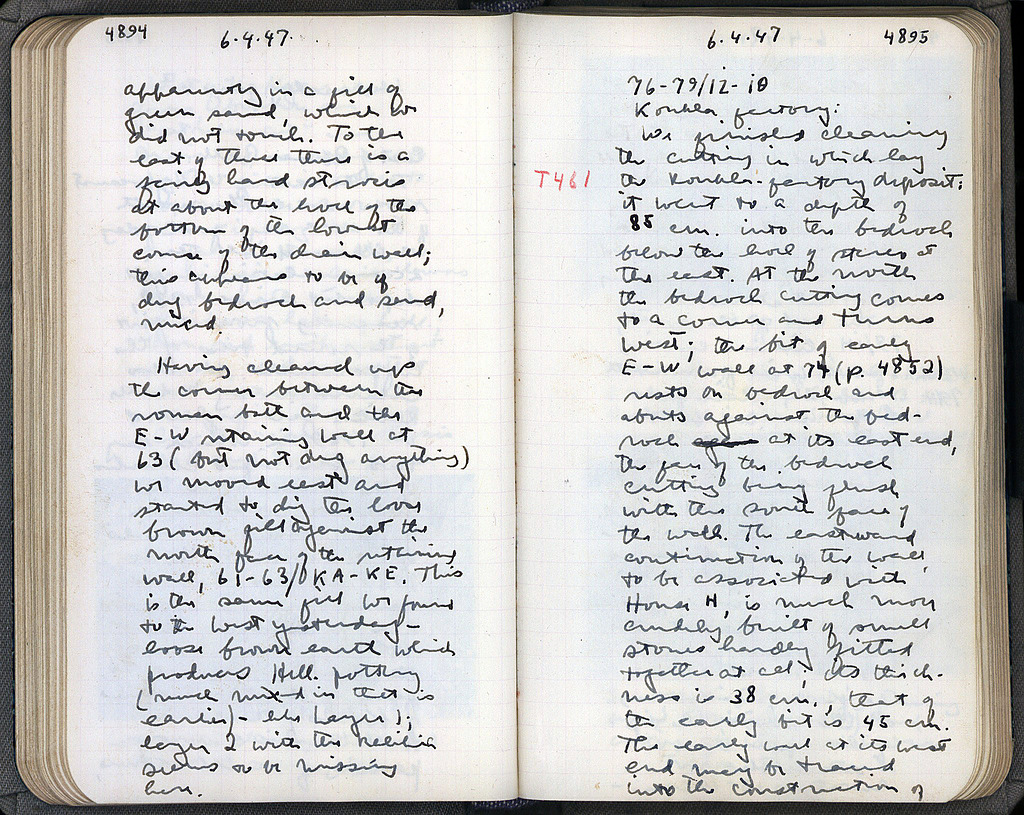 4894
6.4.47.
apparently in a fill of
green sand, which we
did not touch. To the
east of these there is a
fairly hard strosis
at about the level of the
bottom of the lowest
course of the drain wall;
this appears to be of
dug bedrock and sand,
mixed.
Having cleaned up
the corner between the
roman bath and the
E-W retaining wall at
63 (but not dug anything)
we moved east and
started to dig the loose
brown fill against the
north face of the retaining
wall, 61-63/KA-KE. This
is the same fill we found
to the west yesterday -
loose brown earth which
produces Hell. pottery
(much mixed in that is
earlier) - like Layer 1;
layer 2 with the
seems to be missing
here.
6.4.47
4895
76-79/12-18
Koukla factory:
We finished cleaning
the cutting in which lay
T461
the Koukla-factory deposit;
it went to a depth of
85 cm. into the bedrock
below the level of stereo at
the east. At the north
the bedrock cutting comes
to a corner and turns
west; the bit of early
E-W wall at 74 (p. 4852)
rests on bedrock and
abuts against the bed-
rock at its east end,
the face of the bedrock
cutting being flush
with the south face of
the wall. The eastward
continuation of the wall,
to be associated with
House H, is much more
crudely built of small
stones hardly fitted
together at all; its thick-
ness is 38 cm., that of
the early bit is 45 cm.
The early wall at its west
end may be traced
into the construction of